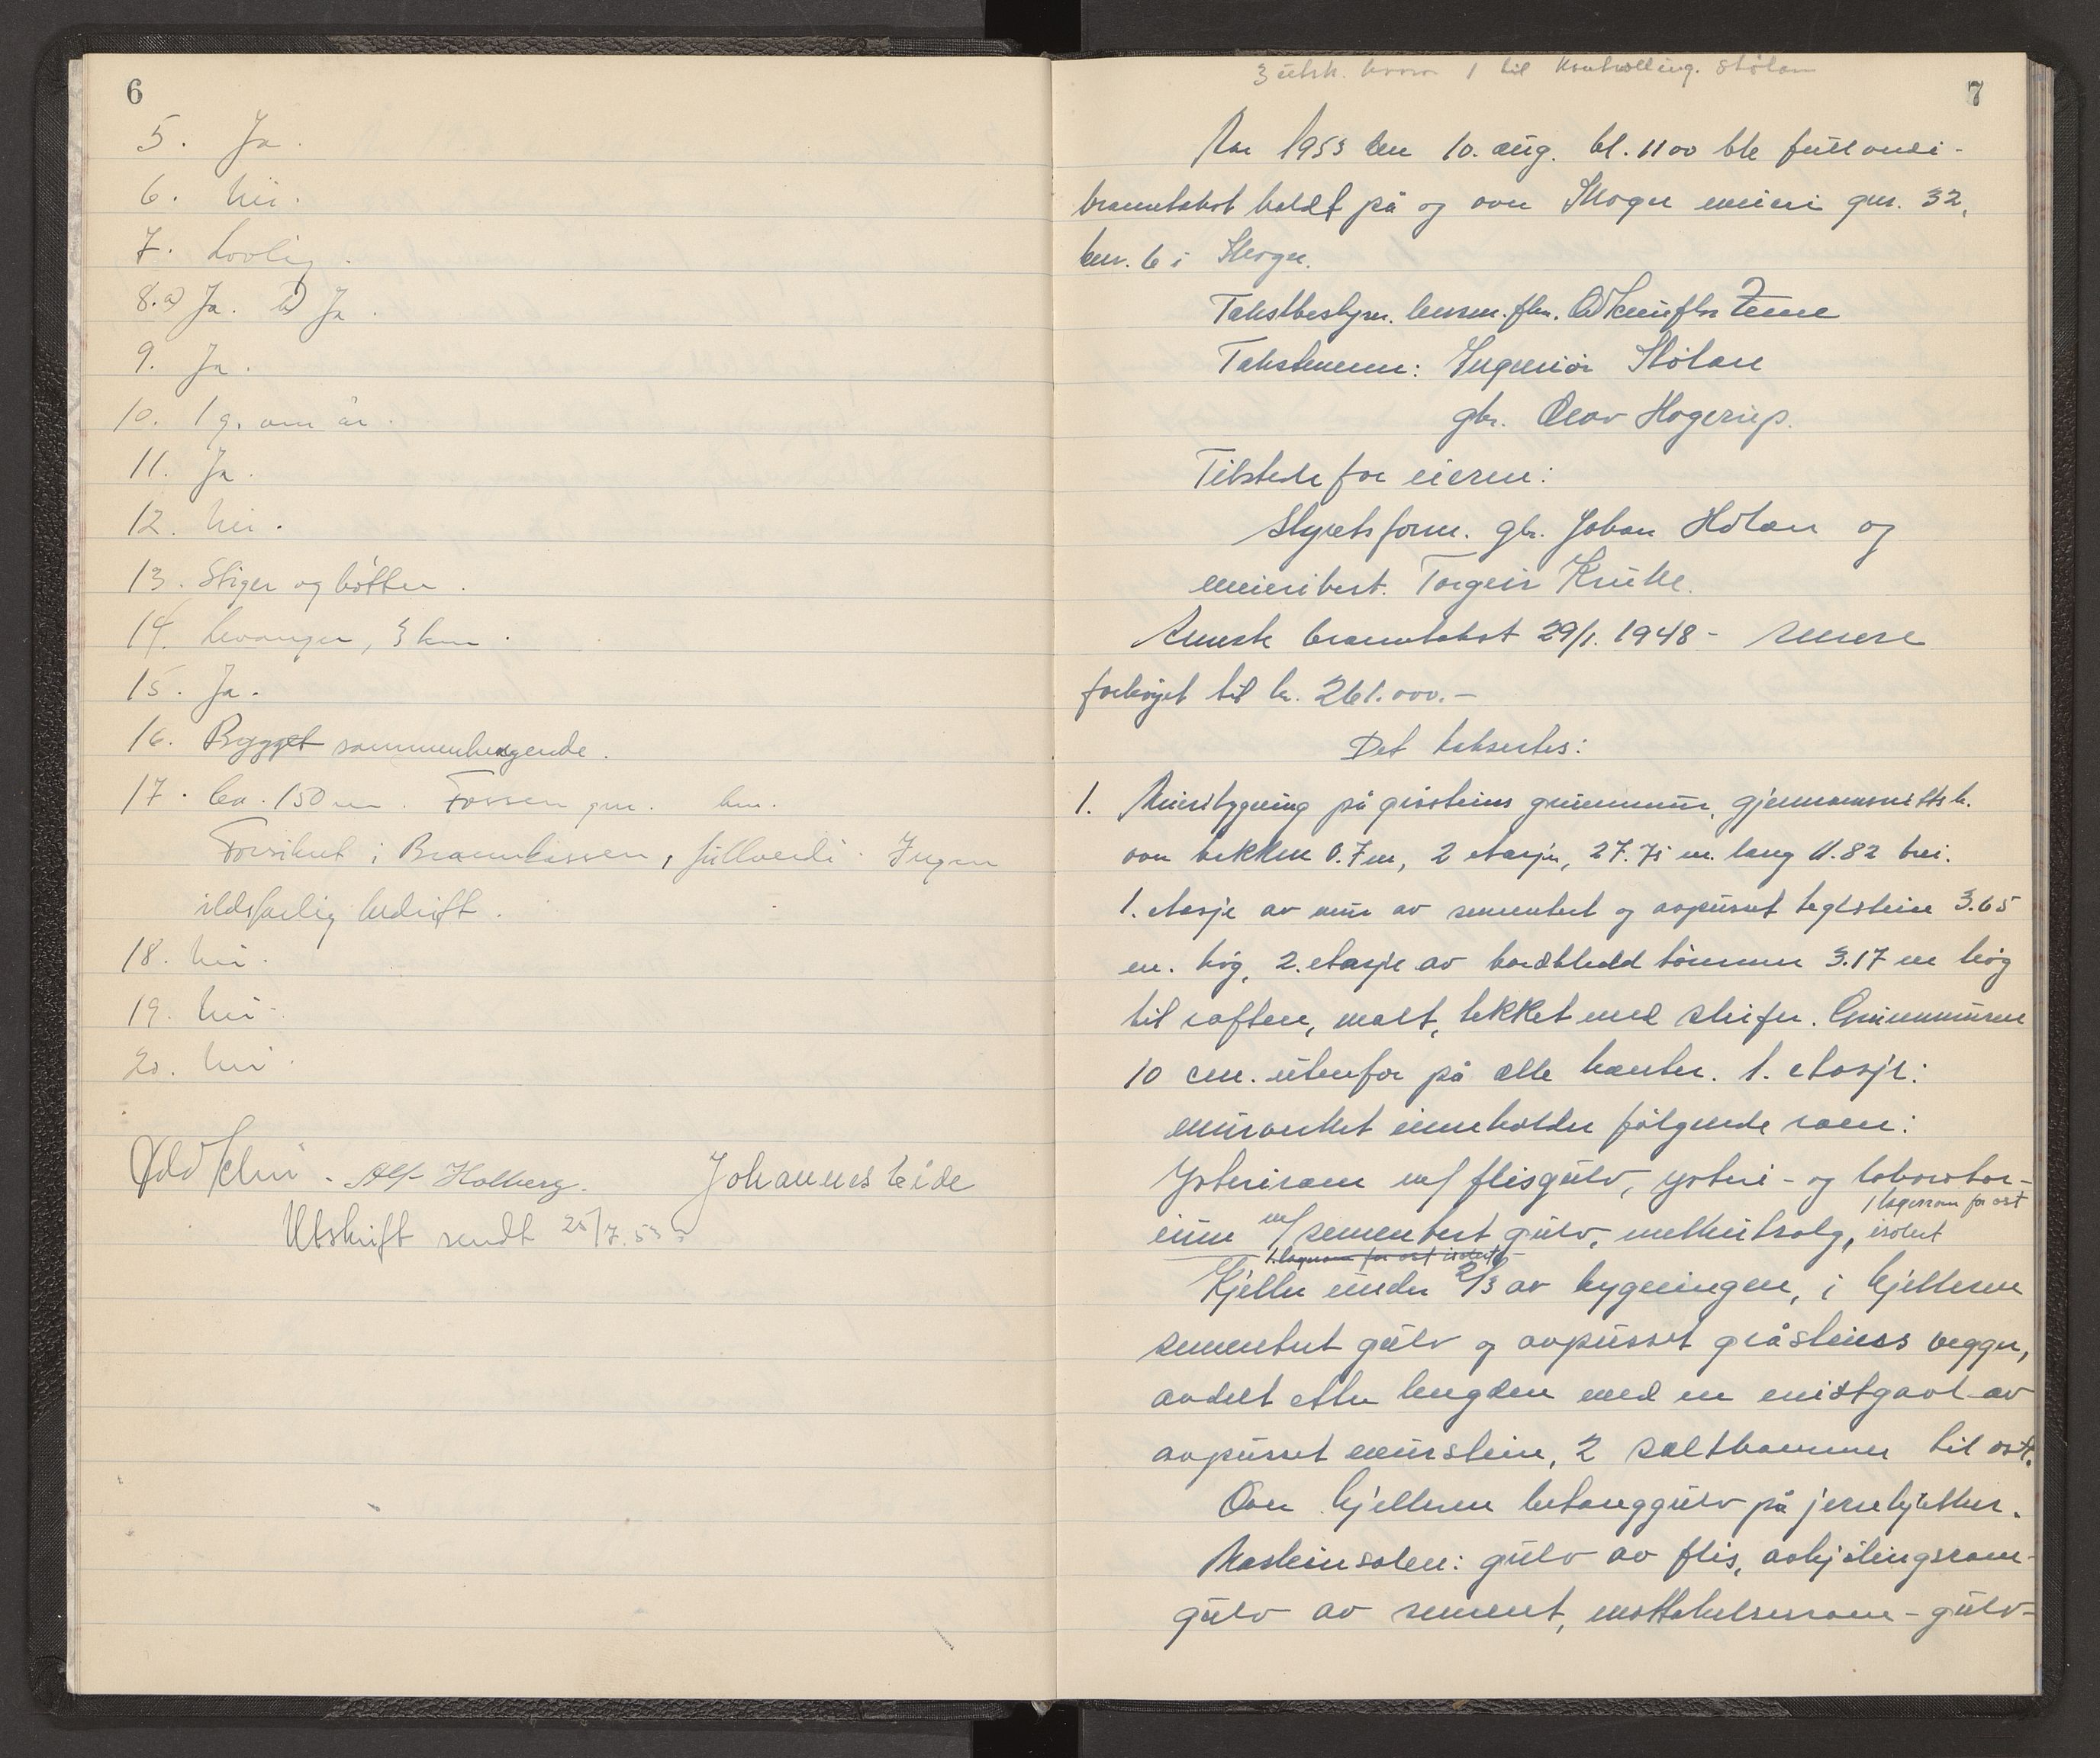 6
5. Ja.
6. Nei.
7. Lovlig.
8. a) Ja. b) Ja.
9. Ja.
10. 1 g. om år.
11. Ja.
12. Nei.
13. Stiger og bøtter.
14. Levanger, 3 km.
15. Ja.
16. Bygget sammenhengende.
17. Ca. 150 m. Fossen gnr. bnr.
Forsikret i Brannkassen, fullverdi. Ingen
ildsfarlig bedrift.
18. Nei.
19. Nei.
20. Nei.
Odd Alf Holberg. Johannes Eide
Utskrift sendt 25/7.53
7
3 utskr. hvorav 1 til Kontrolling. Stølan
Aar 1953 den 10. aug. kl. 11 00 ble fullverdi-
branntakst holdt på og over Skogn meieri gnr. 32,
bnr. 6 i Skogn.
Takstbestyrer. lensm.flm.
Takstmenn: Ingeniør Stølan
gbr. Olov Hogerup.
Tilstede for eieren:
Styrets form. gbr. Johan Holan og
meieribest. Torgeir Krukke.
Avenste branntakst 29/1. 1948 - senere
forhøyet til kr. 261.000.-
Det takseres:
1. Meieribygning på gråsteins grunnmur, gjennomsnitts h.
over bakken 0.7 m, 2 etasjer, 27.75 m. lang 11.82 brei.
1. etasje av mur av sementert og avpusset teglstein 3.65
m. høg, 2. etasje av bordkledd tømmer 3.17 m høg
til raften, malt, tekket med skifer. Grunnmuren
10 cm. utenfor på alle kanter. 1. etasje:
murverket inneholder følgende rom:
Ysterirom m/ flisgulv, ysteri- og laborator-
ium m/ sementert gulv, melkeutsalg, 1 lagerrom for ost isolert
1 lagerrom for ost isolert
Kjeller under 2/3 av bygningen, i kjelleren
sementert gulv og avpusset gråsteins vegger,
avdelt etter lengden med en midtgavl av
avpusset murstein, 2 saltkammer til ost.
Over kjelleren betonggulv på jernbjelker.
Maskinsalen: gulv av flis, avkjølingsrom-
gulv av sement, mottakelsesrom - gulv-